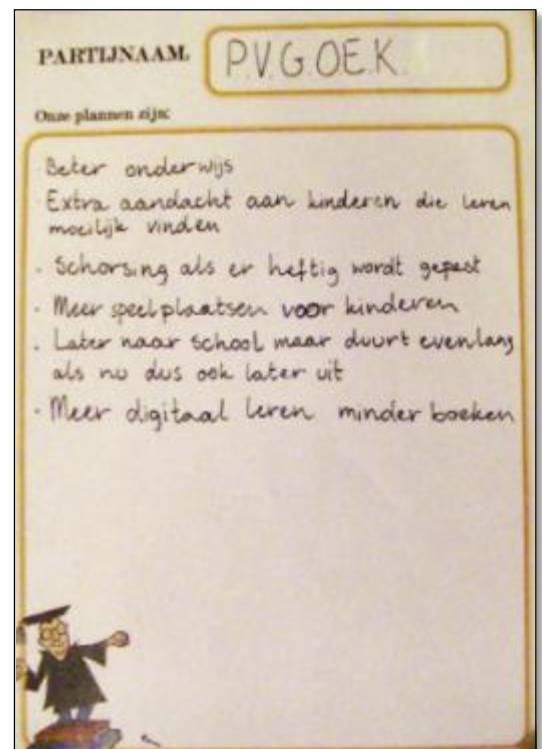 PARTIJNAAM
P.V.G.OE.K.
Onze plannen zijn:
· Beter onderwijs
· Extra aandacht aan kinderen die leren
moeilijk vinden
· Schorsing als er heftig wordt gepest
· Meer speelplaatsen voor kinderen
· Later naar school maar duurt evenlang
als nu dus ook later uit
· Meer digitaal leren minder boeken